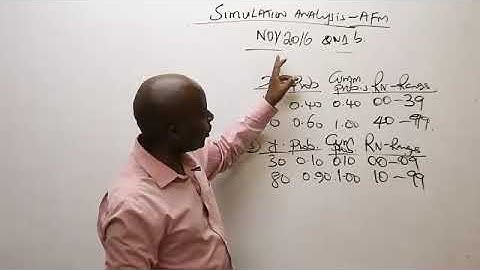 SIMULATION ANALYSIS-AFM
NOV 2016 QN1 b.
Prob Cumm prob. RN-Range
0.40 0.40 00-39
0 0.60 1.00 40-99
Prob. Cum RN-Range
30 0.10 0.10 00-09
80 0.90 1.00 10-99